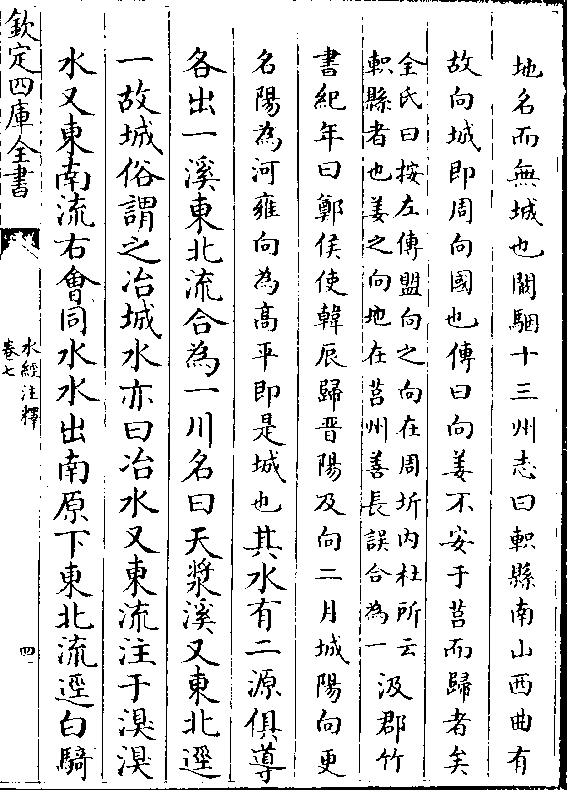 地名而無城也闞駰十三州志曰軹縣南山西曲有
故向城即周向國也傳曰向姜不安于莒而歸者矣
全氏曰按左傳盟向之向在周圻内杜所云
軹縣者也姜之向地在莒州善長誤合為一
汲郡竹
書紀年曰鄭侯使韓辰歸晉陽及向二月城陽向更
名陽為河雍向為高平即是城也其水有二源俱導
各出一溪東北流合為一川名曰天漿溪又東北逕
一故城俗謂之冶城水亦曰冶水又東流注于湨湨
水又東南流右會同水水出南原下東北流逕白騎
欽定四庫全書
水經注釋
卷七
四